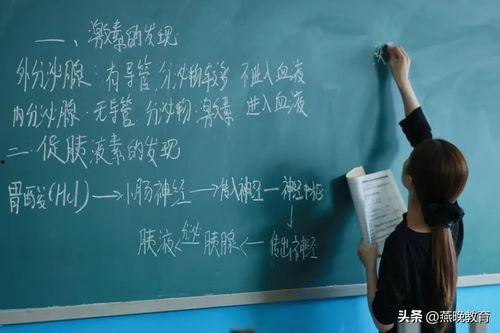 一、激素的发现
外分泌腺：有导管 分泌物较多 不进入血液
内分泌腺：无导管 分泌物：激素 进入血液
二、促胰液素的发现
胃酸(Hcl)→小肠神经→传入神经—神经中枢
↓
胰液←分泌 胰腺←传出神经
头条 @燕晚教育